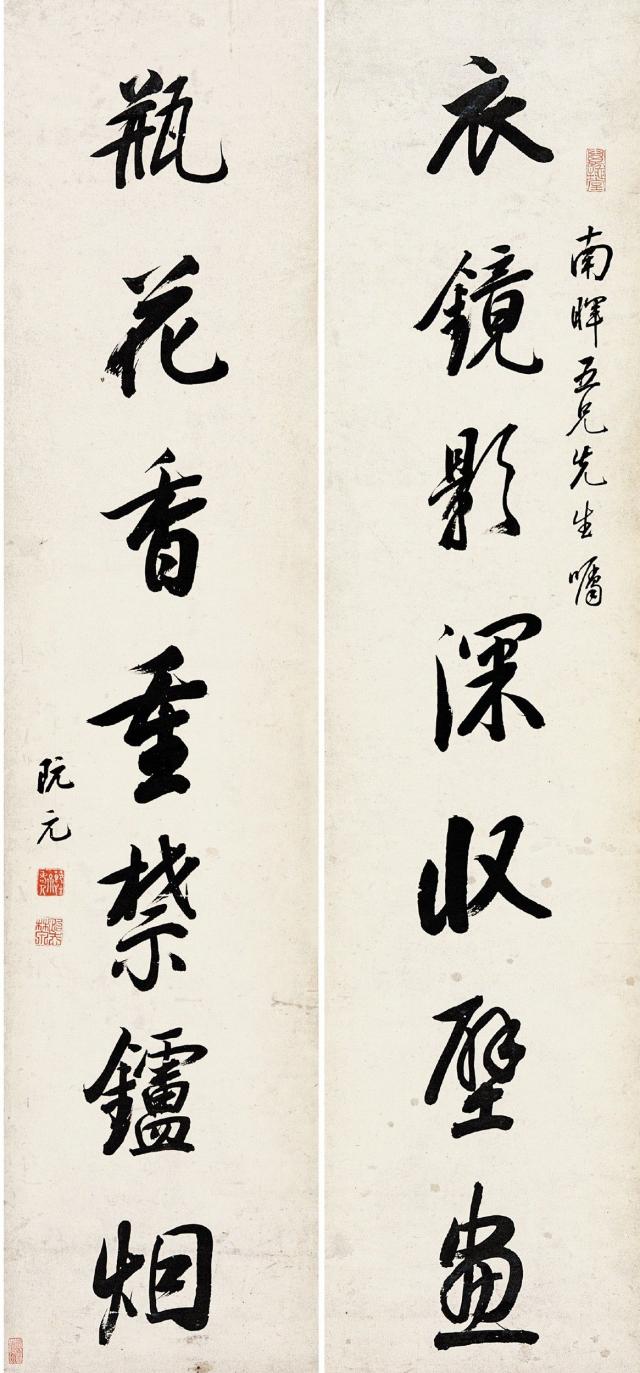 南暉五兄先生嘱
衣鏡影深收壁畫
瓶花香重禁鑪烟
阮元